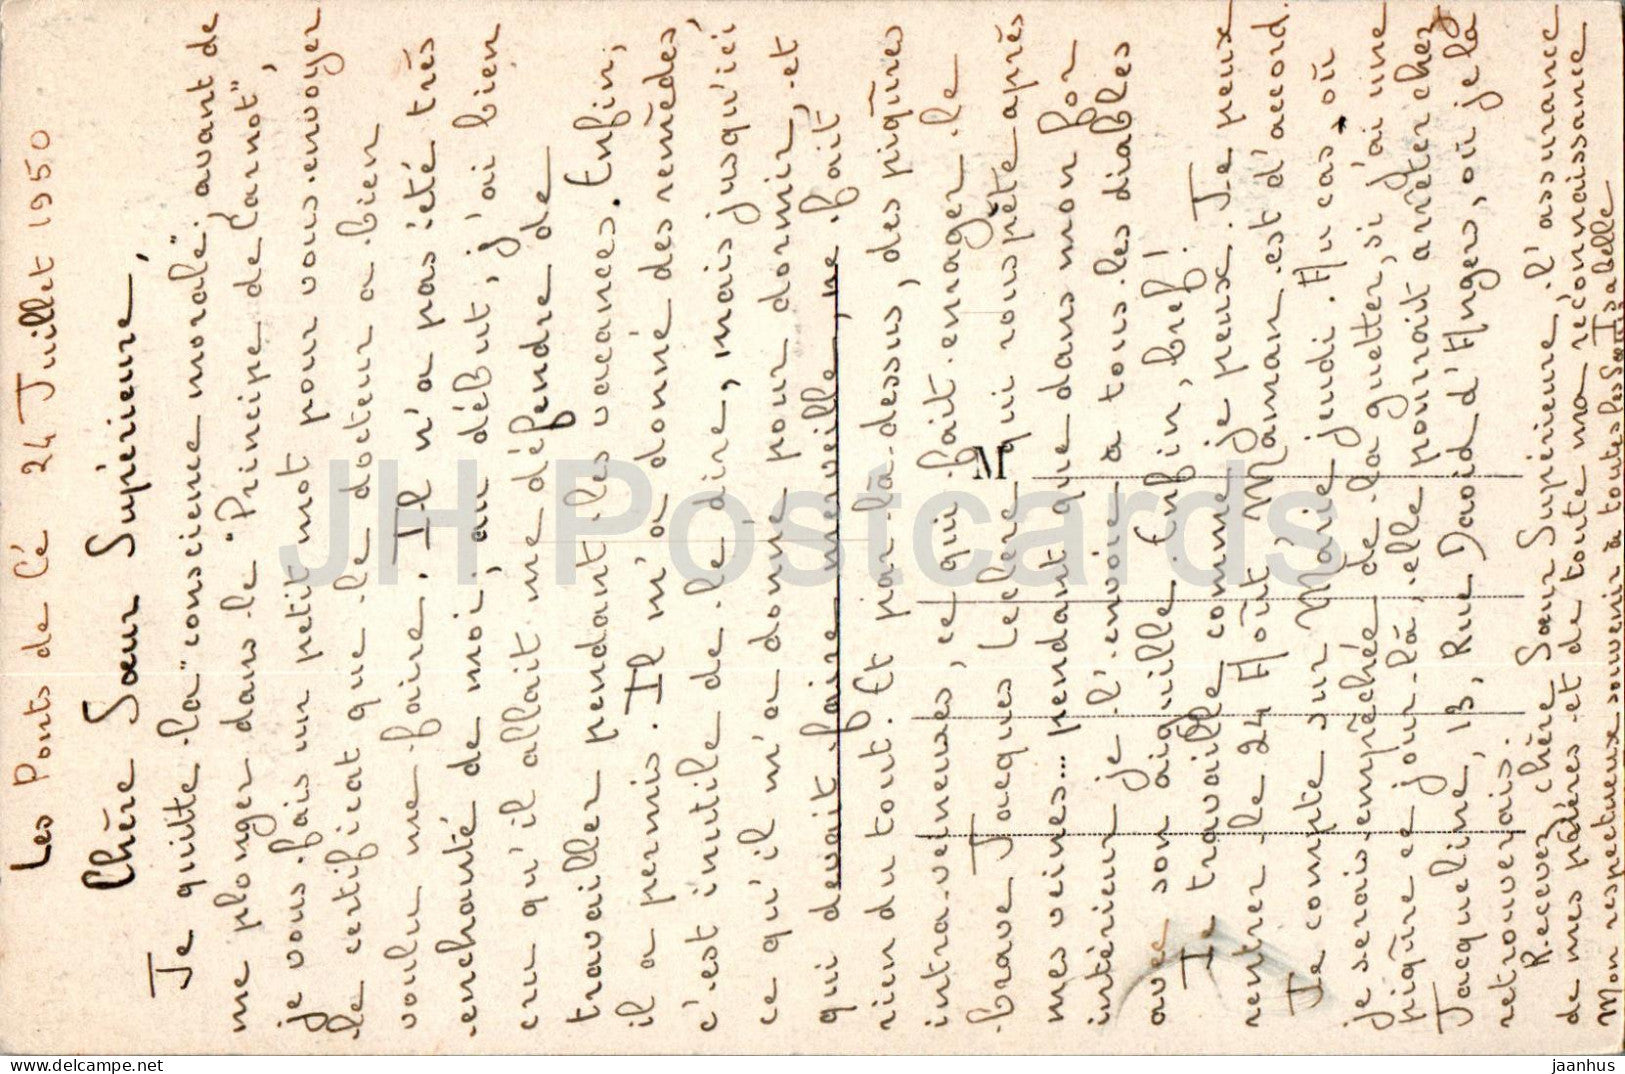 Les Ponts de Cé 24 Juillet 1950
Chère Sœur Supérieure,
Je quitte la "conscience morale", avant de
me plonger dans le "Principe de Carnot",
je vous fais un petit mot pour vous envoyer
le certificat que le docteur a bien
voulu me faire. Il n'a pas été très
enchanté de moi, au début, j'ai bien
cru qu'il allait me défendre de
travailler pendant les vacances. Enfin,
il a permis. Il m'a donné des remèdes
c'est inutile de le dire, mais jusqu'ici
ce qu'il m'a donné pour dormir, et
qui devait faire merveille, ne fait
rien du tout. Et par là-dessus, des piqûres
intra-veineuses, ce qui fait enrager le
brave Jacques Leclerc qui rouspète après
mes veines... pendant que dans mon for
intérieur je l'envoie à tous les diables
avec son aiguille. Enfin, bref!
Je travaille comme je peux. Je peux
rentrer le 24 Août, Maman est d'accord.
Je compte sur Marie jeudi. Au cas où
je serais empêchée de la guetter, si j'ai une
piqûre ce jour-là, elle pourrait arrêter chez
Jacqueline, 13, Rue David d'Angers, où je la
retrouverais.
Recevez chère Sœur Supérieure, l'assurance
de mes prières et de toute ma reconnaissance
Mon respectueux souvenir à toutes les Sœurs Isabelle
M
JH Postcards
www.delcampe.net
jaanhus